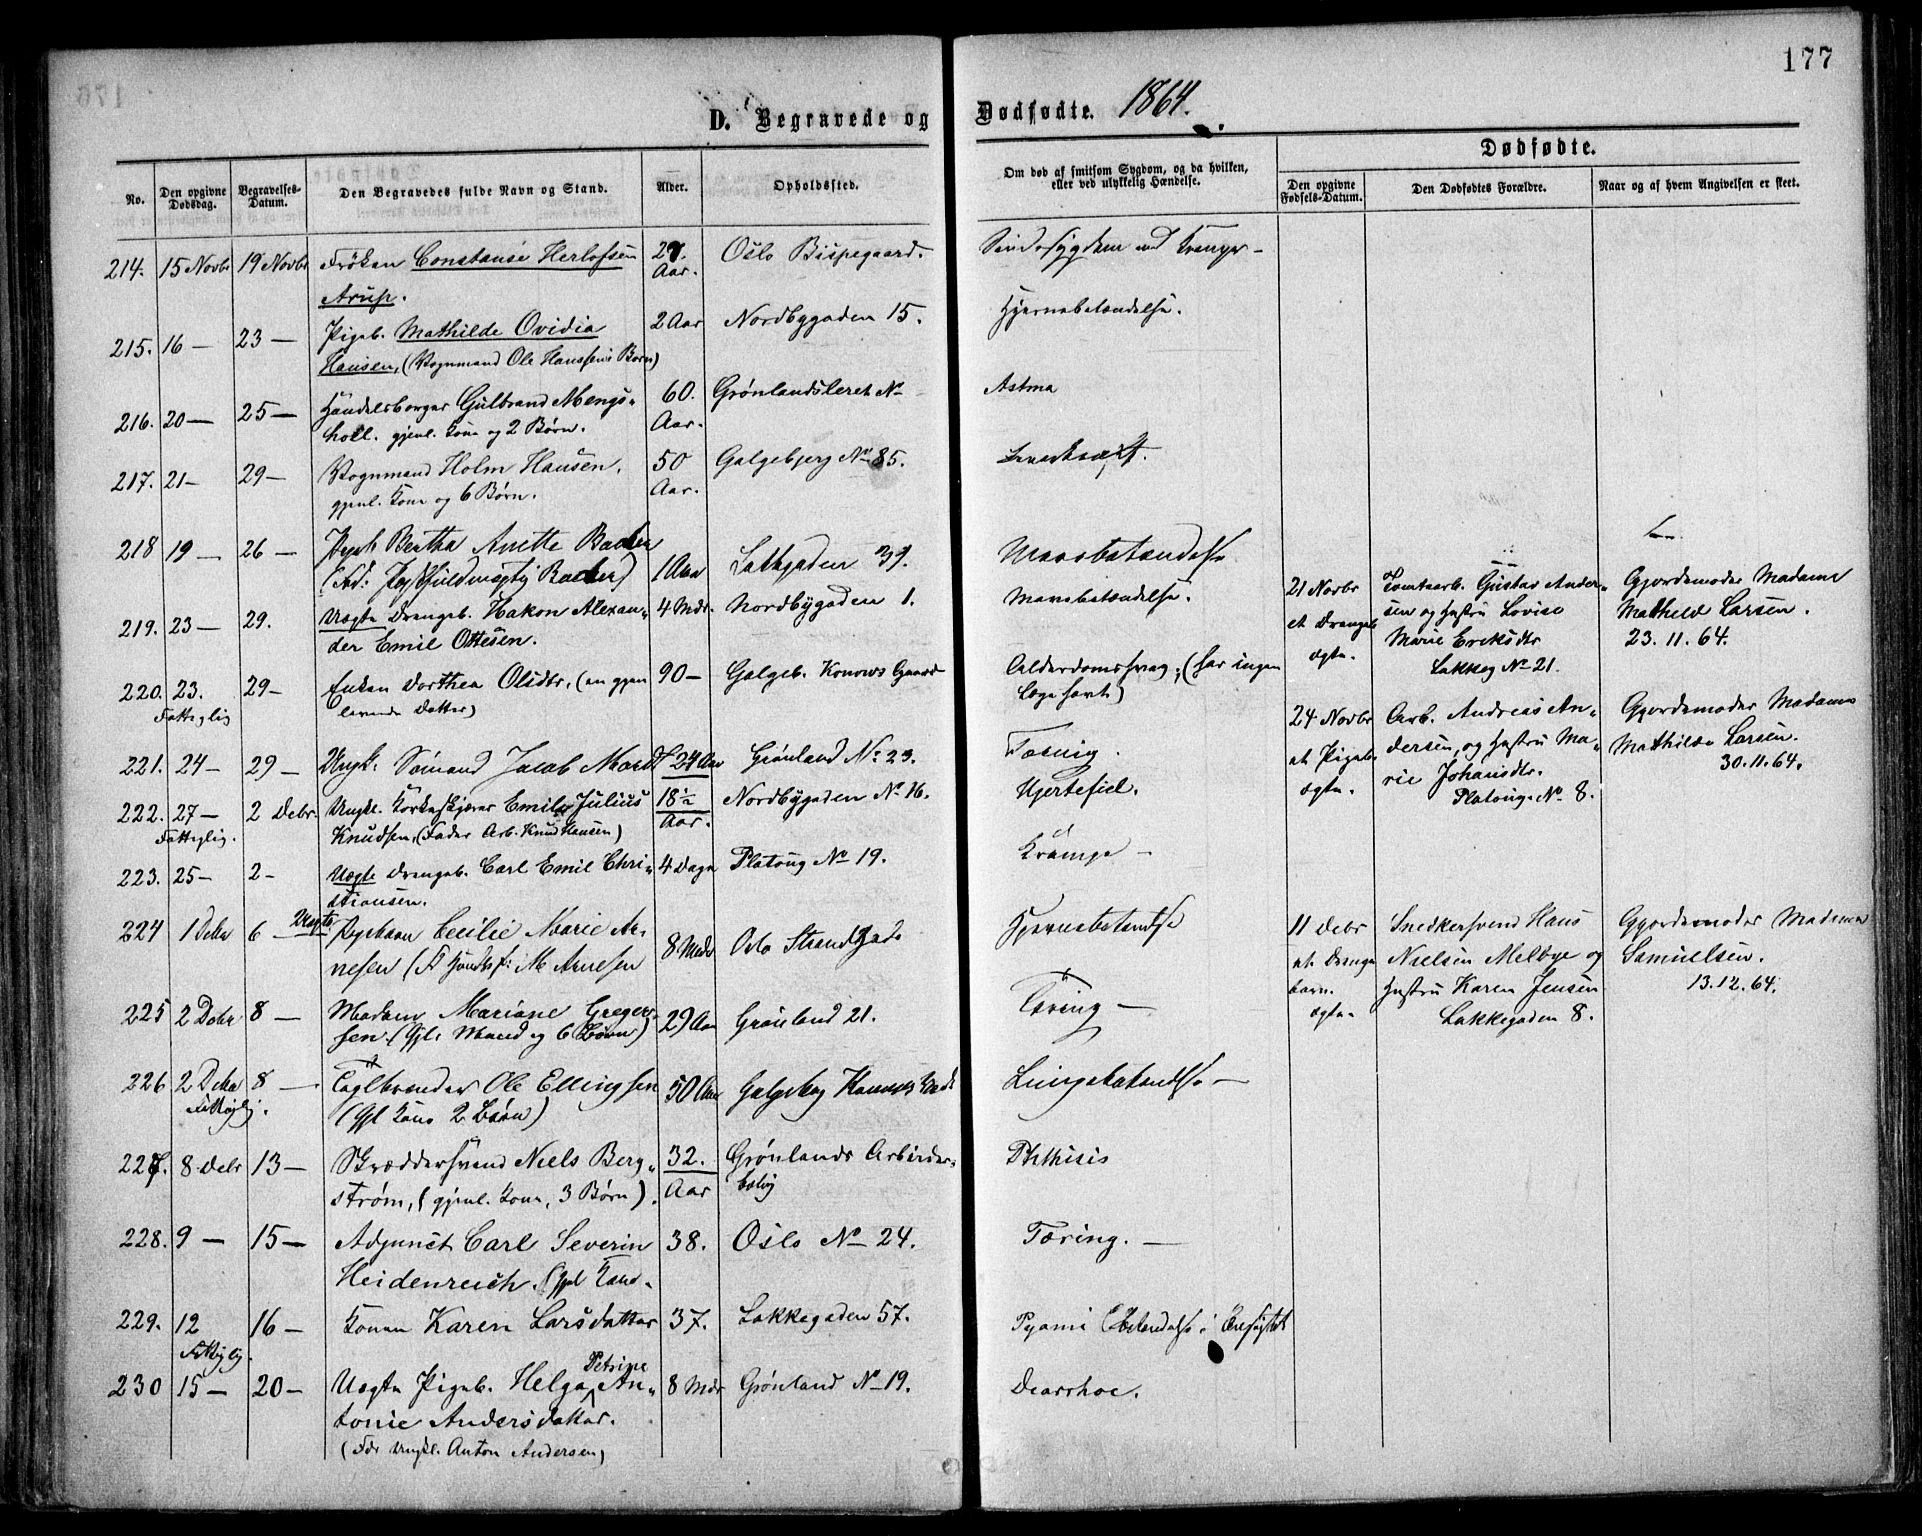 177
D. Begravede og Dødfødte. 1864.
No. Den opgivne Dødsdag. Begravelses-Datum. Den Begravedes fulde Navn og Stand. Alder. Opholdssted. Om død af smitsom Sygdom, og da hvilken, eller ved ulykkelig Hændelse.
Dødfødte.
Den opgivne Fødsels-Datum. Den Dødfødtes Forældre. Naar og af hvem Angivelsen er skeet.
214. 15 Novbr 19 Novbr Frøken Constanse Herlofsen 27. Aar. Oslo Bispegaard. Sindssygdom ved
Arup.
215. 16 — 23 — Pigeb. Mathilde Ovidia 2 Aar Nordbygaden 15. Hjernebetændelse.
Hansen, (Vognmand Ole Hanssens Barn)
216. 20 — 25 — Handelsborger Gulbrand Mengs- 60. Aar. Grønlandsleret No Astma
holl. gjenl. Kone og 2 Børn.
217. 21 — 29 — Vognmand Holm Hansen. 50 Aar. Galgebjerg No 85.
gjenl. Kone og 6 Børn.
218 19 — 26 — Pigeb. Bertha Anette Bacher 1 Aar Lakkgaden 37. Mavebetændelse
Fuldmægtig Bacher)
219. 23 — 29. Uægte Drengeb. Hakon Alexan- 4 Mdr. Nordbygaden 1. Mavebetændelse.
der Emil Ottesen.
220. 23. 29 — Enken Dorthea Olsdtr. (en gjen 90 — Galgeb. Konows Gaard Alderdomssvag; (har ingen
Fattiglig levende Datter) Læge havt)
221. 24 — 29 — Ungk. Sømand Jacob Mardt 24 Aar Grønland No 23. Tæring.
222. 27 — 2 Debr. Ungk. Korkeskjærer Emil Julius 18½ Aar. Nordbygaden No 16. Hjertefeil.
Fattiglig. Knudsen, (Fader Arb. Knud Hansen)
223. 25 — 2 — Uægte Drengeb. Carl Emil Chri- 4 Dage Platoug. No 19. Krampe —
stiansen.
224 1 Debr 6 — Uægte Pigebarn Cecilie Marie Ar- 8 Mdr Oslo Strandgade Hjernebetændelse
nesen M Arnesen
225 2 Debr 8 — Madam Mariane Greger- 29 Aar Grønland 21. Tæring —
sen. (Gjl. Mand og 6 Børn)
226 2 Debr 8 — Teglbrænder Ole Ellingsen 50 Aar Galgebg Konows Lungebetændelse —
Fattiglig. (Gjl Kone 2 Børn)
227. 8 Debr 13 — Skræddersvend Niels Berg- 32. Aar Grønlands Arbeider- Phthisis
strøm, (gjenl. Kone, 3 Børn). bolig
228. 9 — 15 — Adjunct Carl Severin 38. Oslo No 24. Tæring. —
Heidenreich. (Gjl Kone.
229. 12 16 — Konen Karen Larsdatter 37. Lakkegaden 57. Pyæmi
Fattiglig.
230 15 — 20 — Uægte Pigeb. Helga Petrine An- 8 Mdr Grønland No 19. Diarrhoe.
tonie Andersdatter.
(Fdr Ungkl. Anton Andersen)
21 Novbr Tomtearb. Gustav Ander- Gjordemoder Madame
et Drengeb. sen og Hustru Lovise Mathilde Larsen.
ægte. Marie Eriksdtr 23. 11. 64.
Lakkeg No 21.
24 Novbr Arb. Andreas An- Gjordemoder Madame
et Pigeb. dersen, og Hustru Ma- Mathilde Larsen.
ægte. rie Johansdtr. 30. 11. 64.
Platoug. No 8.
11 Debr Snedkersvend Hans Gjordemoder Madame
et Drenge Nielsen Melbye og Samuelsen.
barn. Hustru Karen Jensen 13. 12. 64.
ægte. Lakkegaden 8.